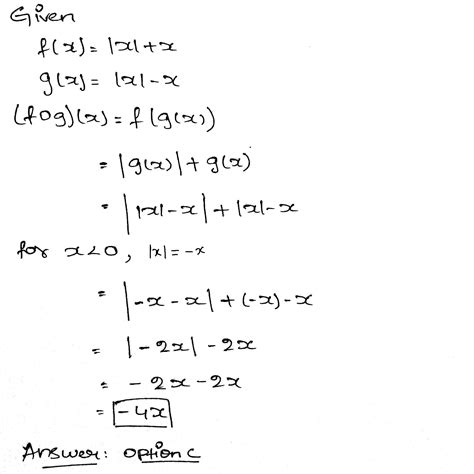 Given
f(x) = |x| + x
g(x) = |x| - x
(fog)(x) = f(g(x))
= |g(x)| + g(x)
= ||x| - x| + |x| - x
for x<0, |x| = -x
= |-x - x| + (-x) - x
= |-2x| - 2x
= -2x - 2x
= -4x
Answer: option C